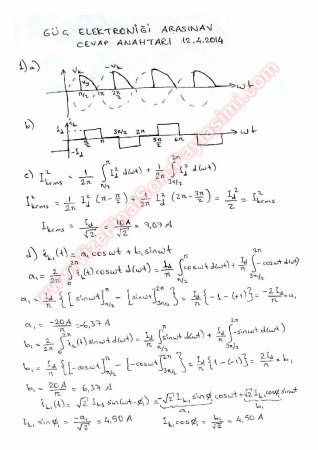 GÜÇ ELEKTRONİĞİ ARASINAV
CEVAP ANAHTARI 12.4.2014
1) a)
Vk -Vk
Vy
π/2 π 3π/2 wt
b)
Id
-Id
π/2 π 3π/2 2π 5π/2 wt
c) I²krms = 1/2π ∫_{π/2}^{π} Id² d(wt) + 1/2π ∫_{3π/2}^{2π} Id² d(wt)
I²krms = 1/2π Id² (π - π/2) + 1/2π Id² (2π - 3π/2) = Id²/2 = I²krms
Ikrms = Id/√2 = 10A/√2 = 7,07 A
d) ik1(t) = a1 coswt + b1 sinwt
a1 = 2/2π ∫_{0}^{2π} ik(t) coswt d(wt) = Id/π ∫_{π/2}^{π} coswt d(wt) + Id/π ∫_{3π/2}^{2π} -coswt d(wt)
a1 = Id/π {[sinwt]_{π/2}^{π} - [sinwt]_{3π/2}^{2π}} = Id/π {-1 - (+1)} = -2Id/π = a1
a1 = -20A/π = -6,37 A
b1 = 2/2π ∫_{0}^{2π} ik(t) sinwt d(wt) = Id/π ∫_{π/2}^{π} sinwt d(wt) + Id/π ∫_{3π/2}^{2π} -sinwt d(wt)
b1 = Id/π {[-coswt]_{π/2}^{π} - [-coswt]_{3π/2}^{2π}} = Id/π {1 - (-1)} = 2Id/π = b1
b1 = 20A/π = 6,37 A
ik1(t) = √2 Ik1 sin(wt - φ1) = -√2 Ik1 sinφ1 coswt + √2 Ik1 cosφ1 sinwt
a1 b1
Ik1 sinφ1 = -a1/√2 = 4,50 A Ik1 cosφ1 = b1/√2 = 4,50 A